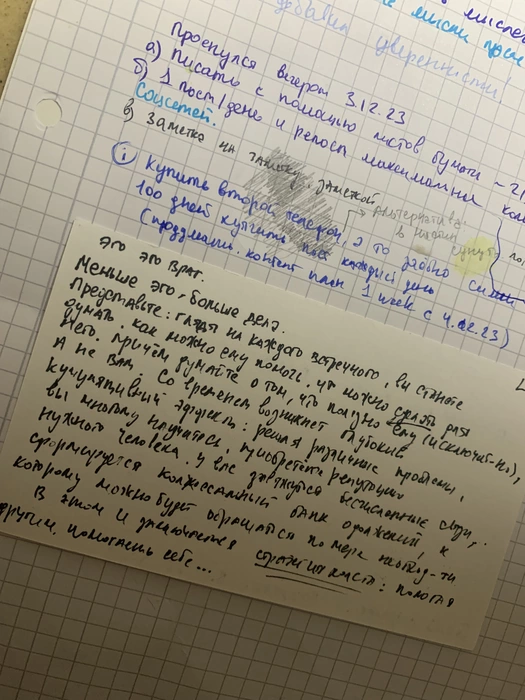 мыслей
е мысли после
добавил уверенности!
Проснулся вечером 3.12.23
а) Писать с помощью листов бумаги ~
б) 1 пост/день и репост максимально
Соцсетей.
в) Заметка на заметкой.
① Купить второй телефон, а то забью
Альтернатива:
в
100 дней купить каждый день
(продумать контент план 1 week с 4.12.23)
Эго это враг.
Меньше эго, больше дела.
Представьте: глядя на каждого встречного, вы станете
думать, как можно ему помочь, что можно сделать для
него. Причём думайте о том, что полезно ему (исключит-но),
а не вам. Со временем возникнет глубокий
кумулятивный эффект: решая различные проблемы,
вы многому научитесь, приобретёте репутацию
нужного человека, у вас завяжутся бесчисленные связи,
сформируется колоссальный банк одолжений, к
которому можно будет обращаться по мере необход-ти
В этом и заключается стратегия каста: помогая
другим, помогаешь себе...